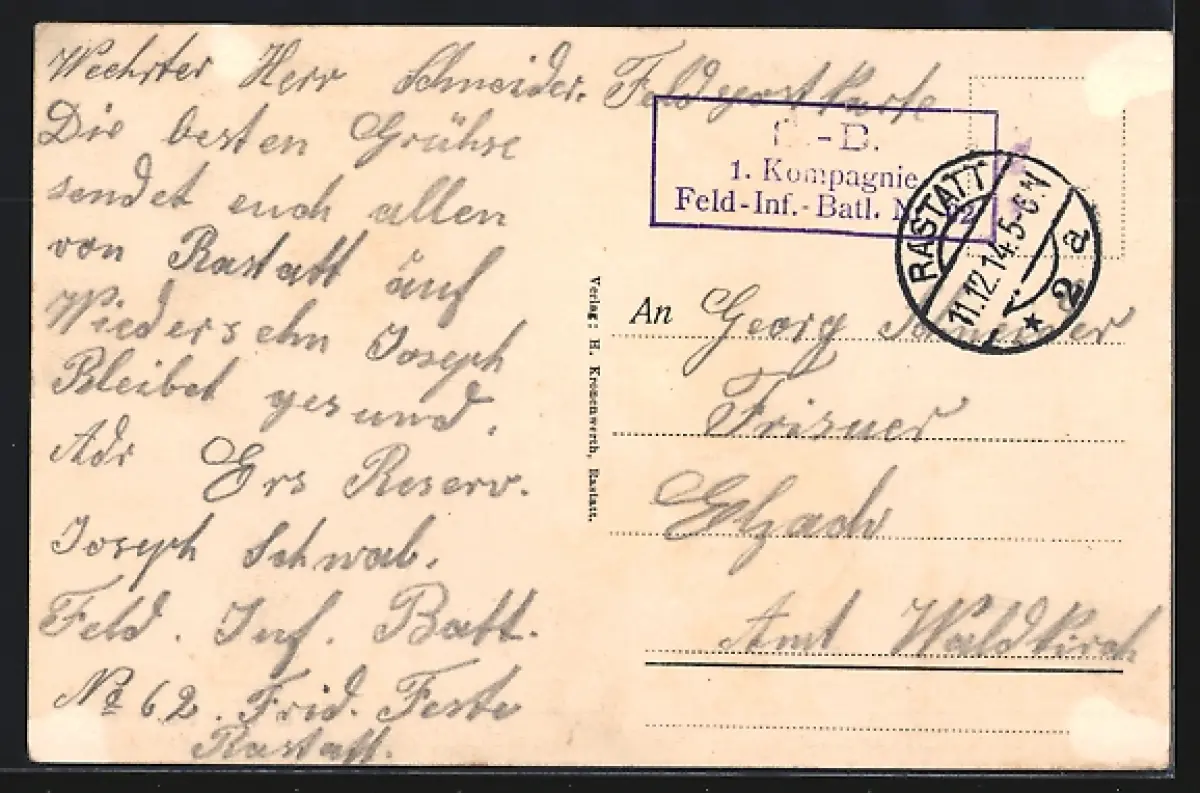 Wehrter Herr Schneider.
Die besten Grühse
sendet euch allen
von Rastatt auf
Wiedersehn Joseph
Bleibet gesund.
Adr Ers Reserv.
Joseph Schwab.
Feld. Inf. Batt.
No 62. Frid. Feste
Rastatt.
Feldpostkarte
S.-B.
1. Kompagnie
Feld-Inf.-Batl. N 62
RASTATT
11.12.14.5-6N
* 2 a
Verlag: H. Kronenwerth, Rastatt.
An Georg Schneider
Frisuer
Elzach
Amt Waldkirch